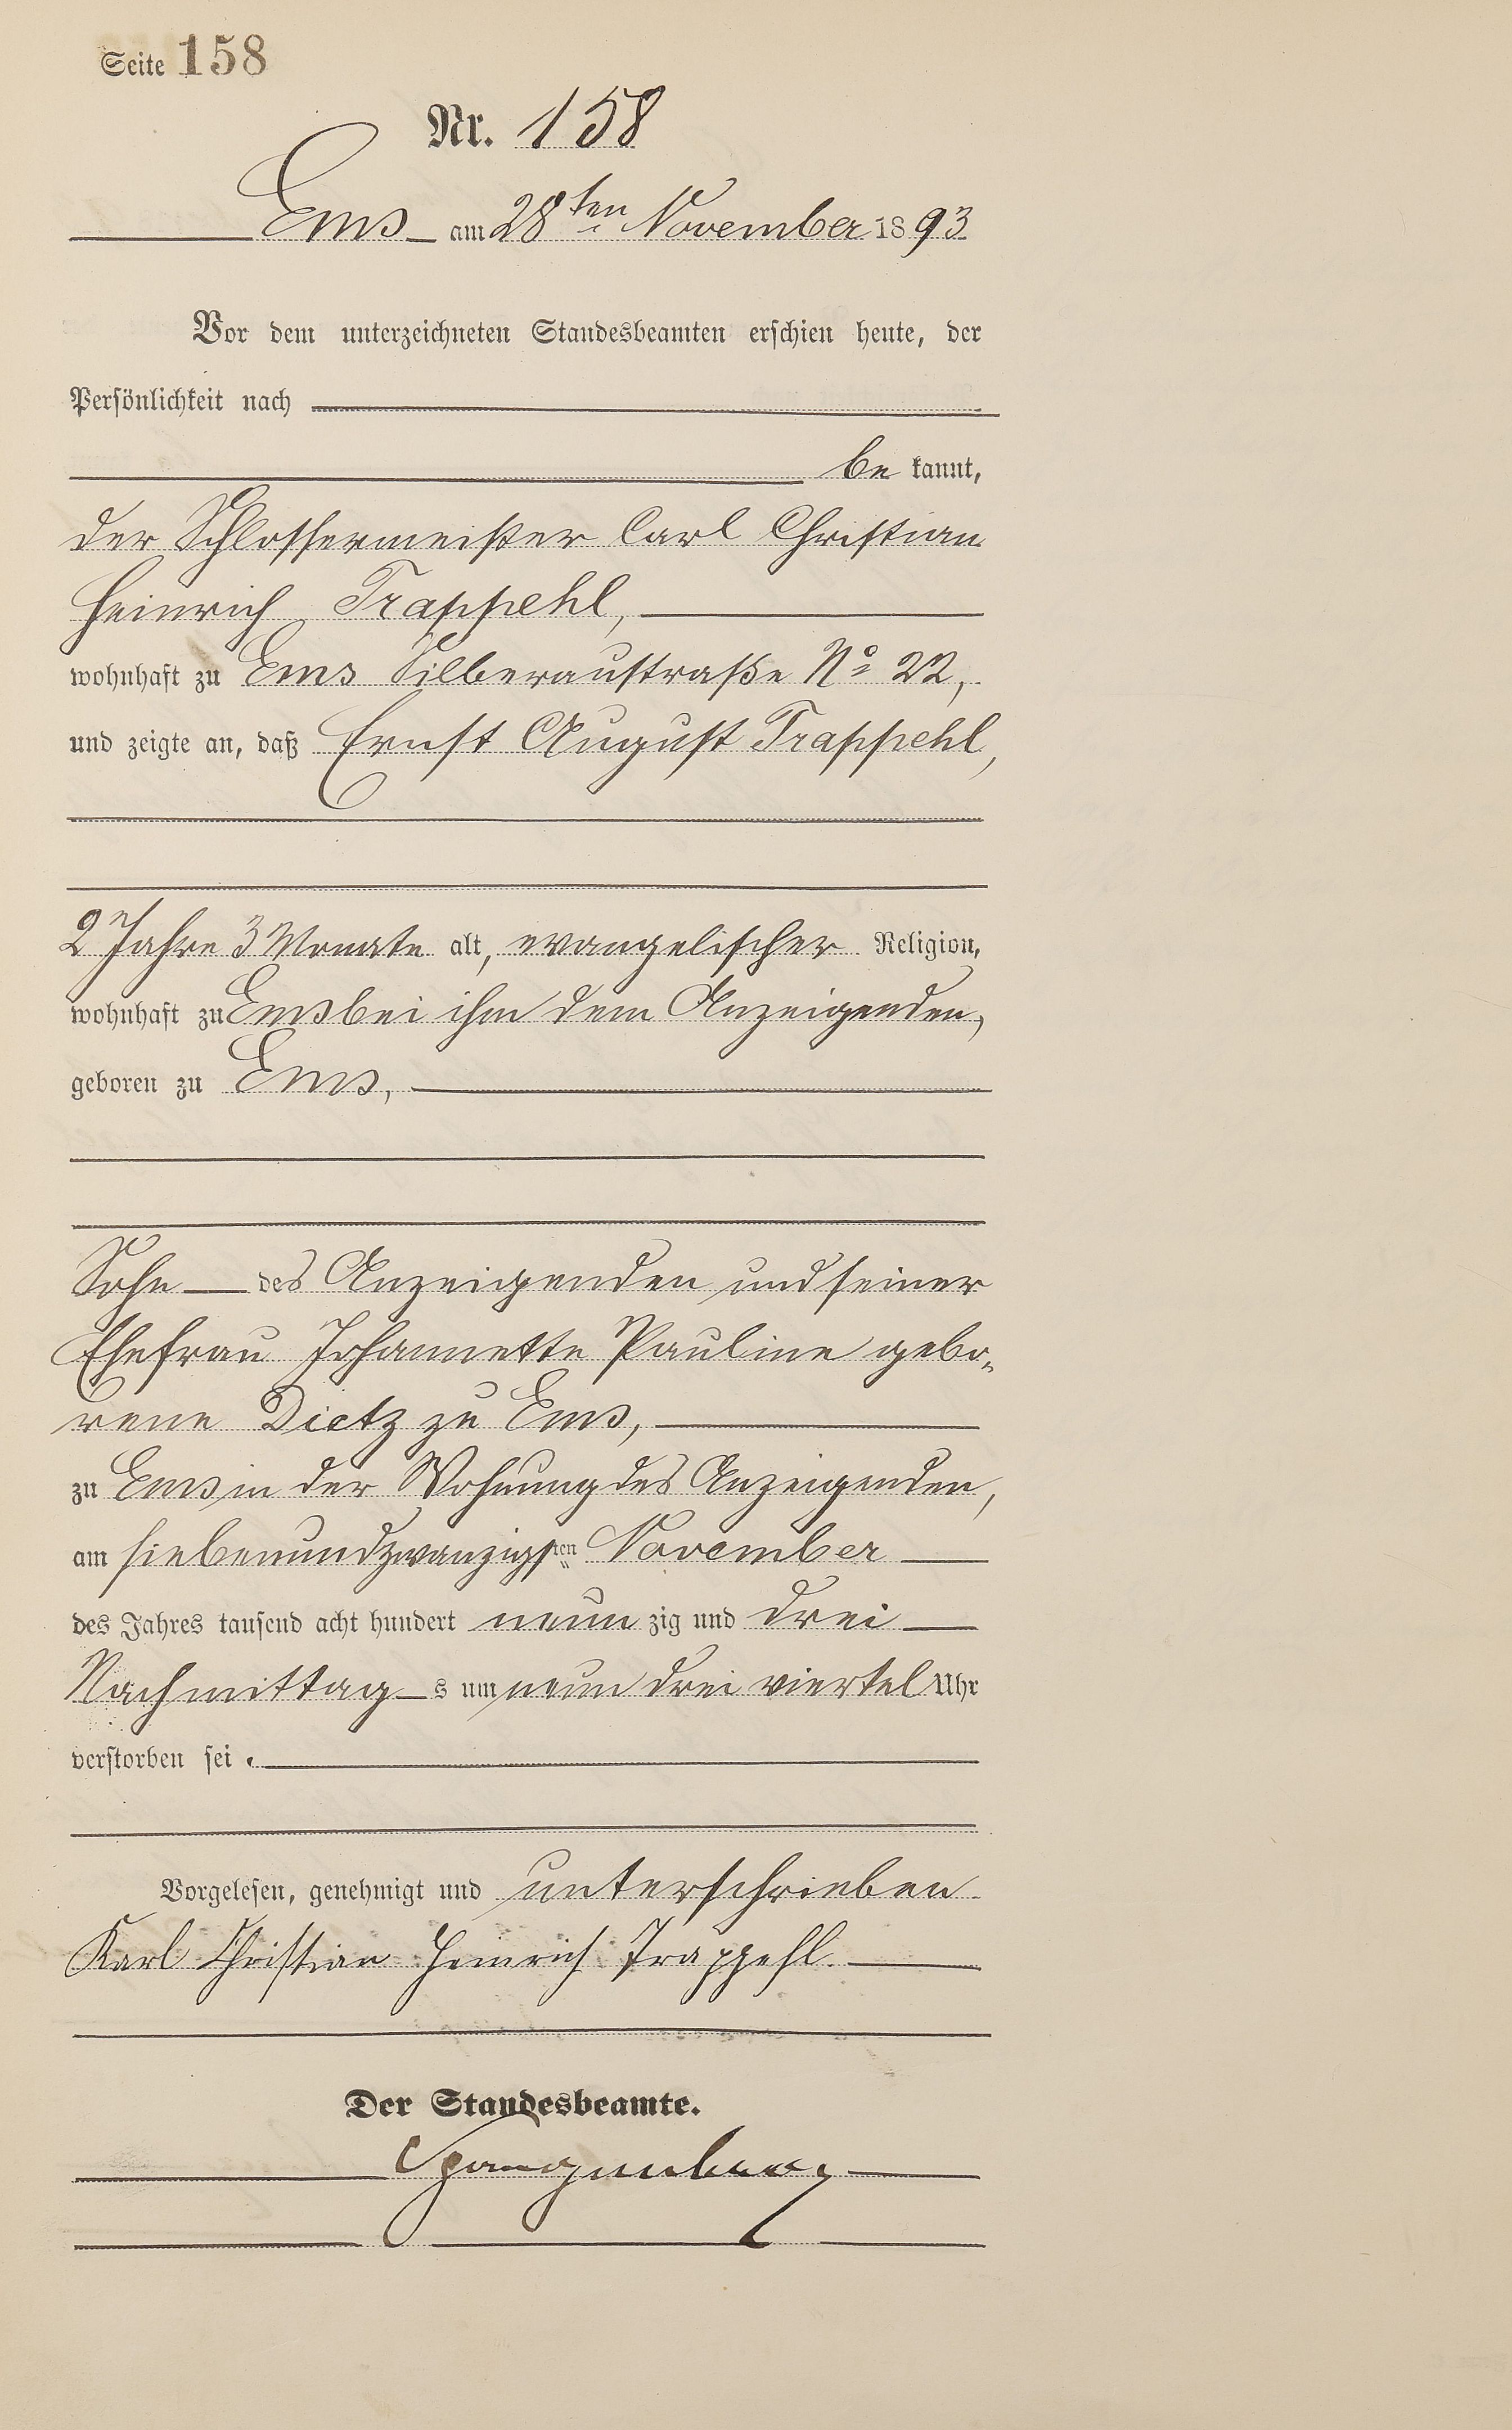 Seite 158
Nr. 158
Ems am 28ten November 1893
Vor dem unterzeichneten Standesbeamten erschien heute, der
Persönlichkeit nach
be kannt,
der Schlossermeister Carl Christian
Heinrich Trappehl,
wohnhaft zu Ems Silberaustraße No 22,
und zeigte an, daß Ernst August Trappehl,
2 Jahre 3 Monate alt, evangelischer Religion,
wohnhaft zu Ems bei ihm dem Anzeigenden,
geboren zu Ems,
Sohn des Anzeigenden und seiner
Ehefrau Johannette Pauline gebo-
rene Dietz zu Ems,
zu Ems in der Wohnung des Anzeigenden,
am siebenundzwanzigsten November
des Jahres tausend acht hundert neun zig und drei
Nachmittag s um neun drei viertel Uhr
verstorben sei.
Vorgelesen, genehmigt und unterschrieben
Karl Christian Heinrich Trappehl.
Der Standesbeamte.
Spangenberg